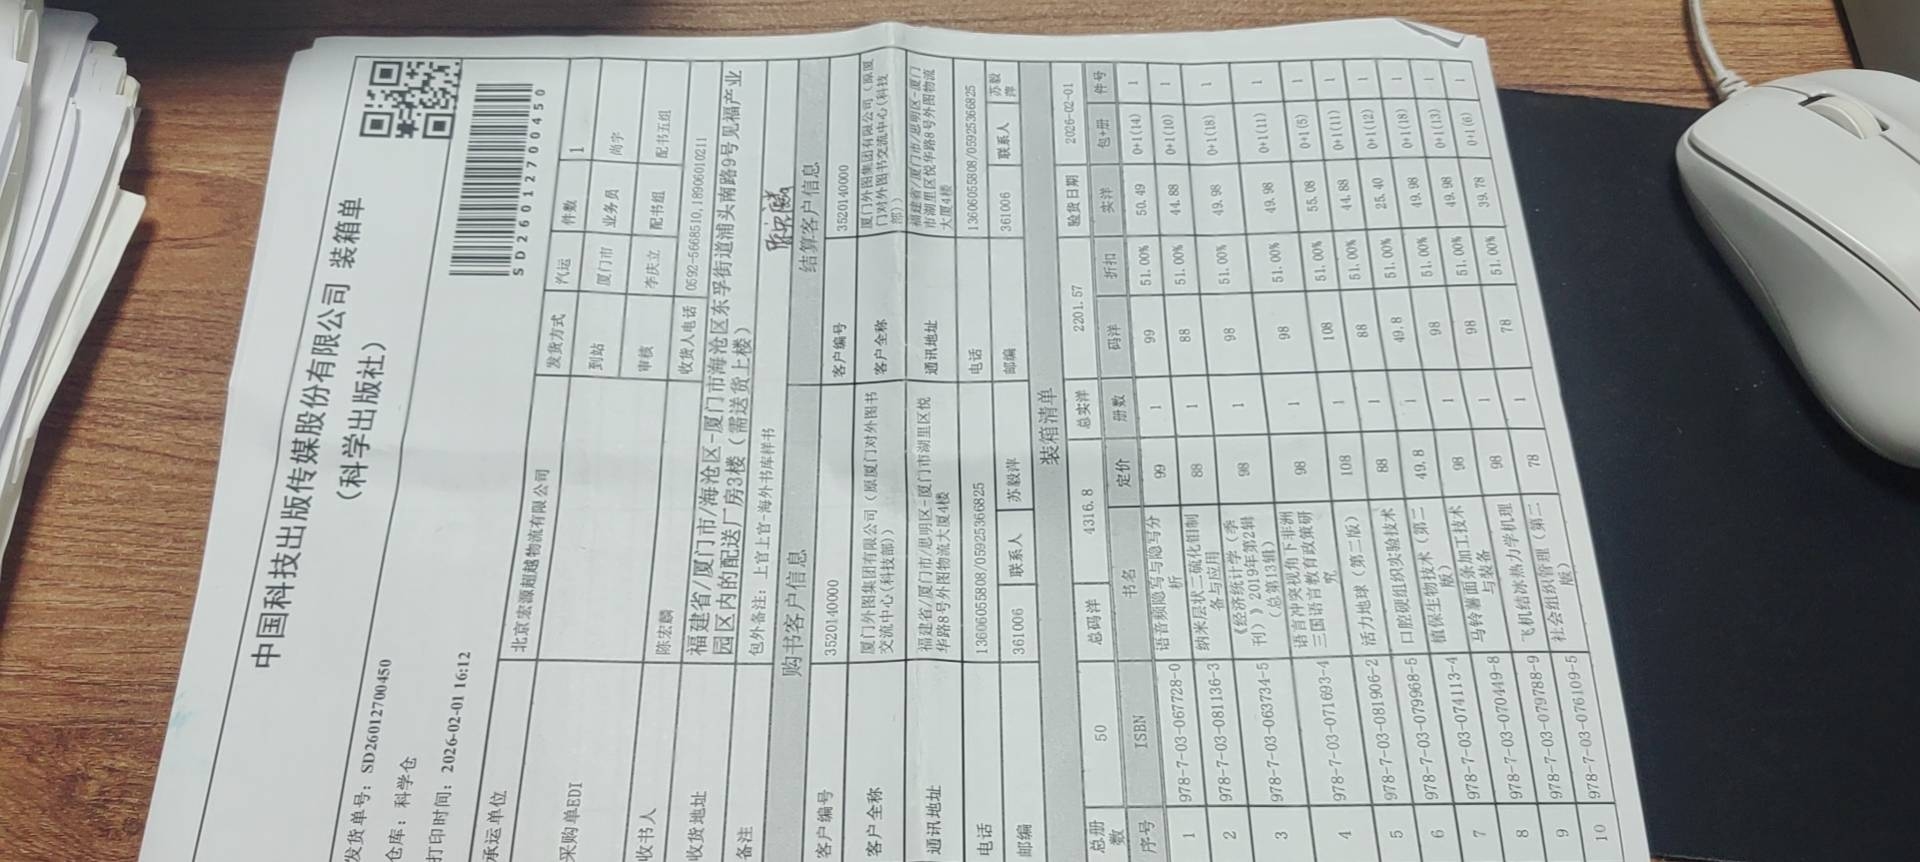 中国科技出版传媒股份有限公司 装箱单
（科学出版社）
发货单号：SD2601270450
仓库：科学仓
打印时间：2026-02-01 16:12
SD2601270450
承运单位 北京宏源超越物流有限公司 发货方式 汽运 件数 1
采购单EDI 到站 厦门市 业务员 尚宇
审核 李庆立 配书组 配书五组
收书人 陈宏麟 收货人电话 0592-5668510,18906010211
收货地址 福建省/厦门市/海沧区-厦门市海沧区东孚街道浦头南路9号见福产业
园区内的配送厂房3楼（需送货上楼）
备注 包外备注：上官上官-海外书库样书
购书客户信息 结算客户信息
客户编号 3520140000 客户编号 3520140000
客户全称 厦门外图集团有限公司（原厦门对外图书
交流中心(科技部)） 客户全称 厦门外图集团有限公司（原厦
门对外图书交流中心(科技
部)）
通讯地址 福建省/厦门市/思明区-厦门市湖里区悦
华路8号外图物流大厦4楼 通讯地址 福建省/厦门市/思明区-厦门
市湖里区悦华路8号外图物流
大厦4楼
电话 13606055808/05925366825 电话 13606055808/05925366825
邮编 361006 联系人 苏毅萍 邮编 361006 联系人 苏毅
萍
装箱清单
总册
数 50 总码洋 4316.8 总实洋 2201.57 验货日期 2026-02-01
序号 ISBN 书名 定价 册数 码洋 折扣 实洋 包+册 件号
1 978-7-03-067728-0 语音频隐写与隐写分
析 99 1 99 51.00% 50.49 0+1(14) 1
2 978-7-03-081136-3 纳米层状二硫化钼制
备与应用 88 1 88 51.00% 44.88 0+1(10) 1
3 978-7-03-063734-5 《经济统计学（季
刊）》2019年第2辑
（总第13辑） 98 1 98 51.00% 49.98 0+1(18) 1
4 978-7-03-071693-4 语言冲突视角下非洲
三国语言教育政策研
究 98 1 98 51.00% 49.98 0+1(11) 1
5 978-7-03-081906-2 活力地球（第二版） 108 1 108 51.00% 55.08 0+1(5) 1
6 978-7-03-079968-5 口腔硬组织实验技术 88 1 88 51.00% 44.88 0+1(11) 1
7 978-7-03-074113-4 植保生物技术（第二
版） 49.8 1 49.8 51.00% 25.40 0+1(12) 1
8 978-7-03-070449-8 马铃薯面条加工技术
与装备 98 1 98 51.00% 49.98 0+1(18) 1
9 978-7-03-079788-9 飞机结冰热力学机理 98 1 98 51.00% 49.98 0+1(13) 1
10 978-7-03-076109-5 社会组织管理（第二
版） 78 1 78 51.00% 39.78 0+1(6) 1